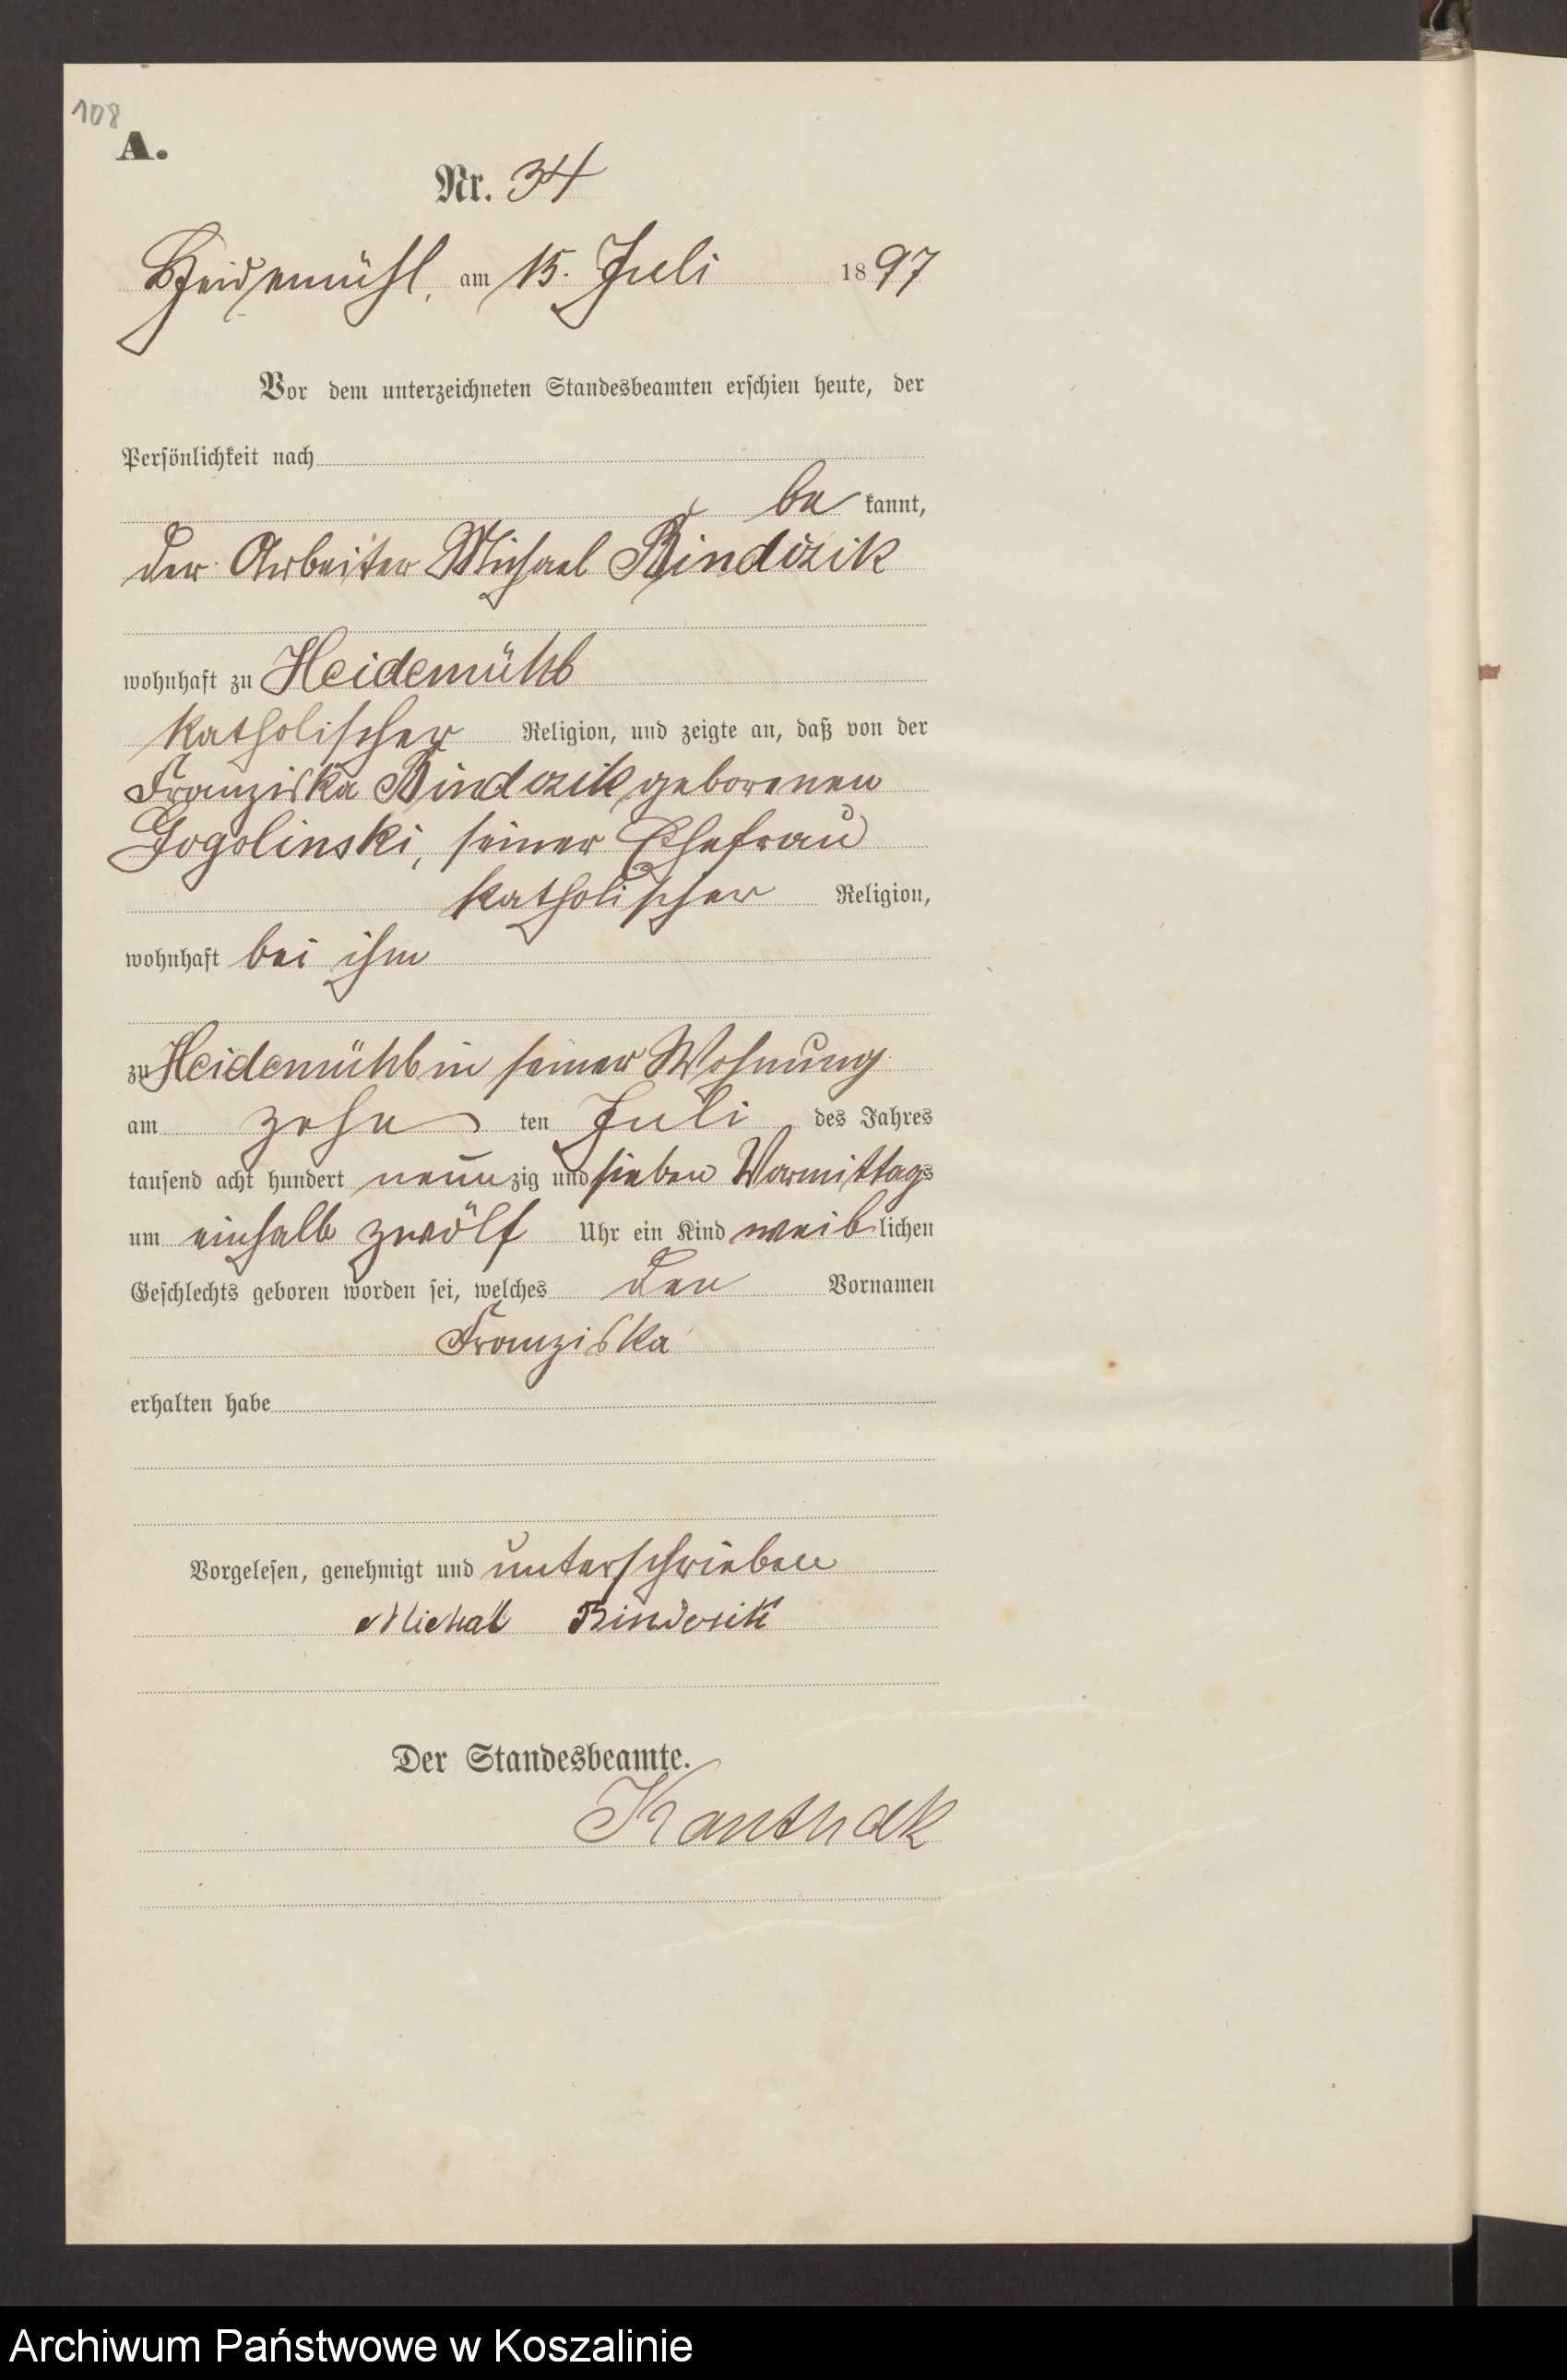 108
A.
Nr. 34
Heidemühl, am 15. Juli 1897
Vor dem unterzeichneten Standesbeamten erschien heute, der
Persönlichkeit nach
be kannt,
der Arbeiter Michael Bindczik
wohnhaft zu Heidemühl
katholischer Religion, und zeigte an, daß von der
Franziska Bindczik geborenen
Gogolinski, seiner Ehefrau
katholischer Religion,
wohnhaft bei ihm
zu Heidemühl in seiner Wohnung
am zehn ten Juli des Jahres
tausend acht hundert neunzig und sieben Vormittags
um einhalb zwölf Uhr ein Kind weiblichen
Geschlechts geboren worden sei, welches den Vornamen
Franziska
erhalten habe
Vorgelesen, genehmigt und unterschrieben
Michal
Der Standesbeamte.
Archiwum Państwowe w Koszalinie